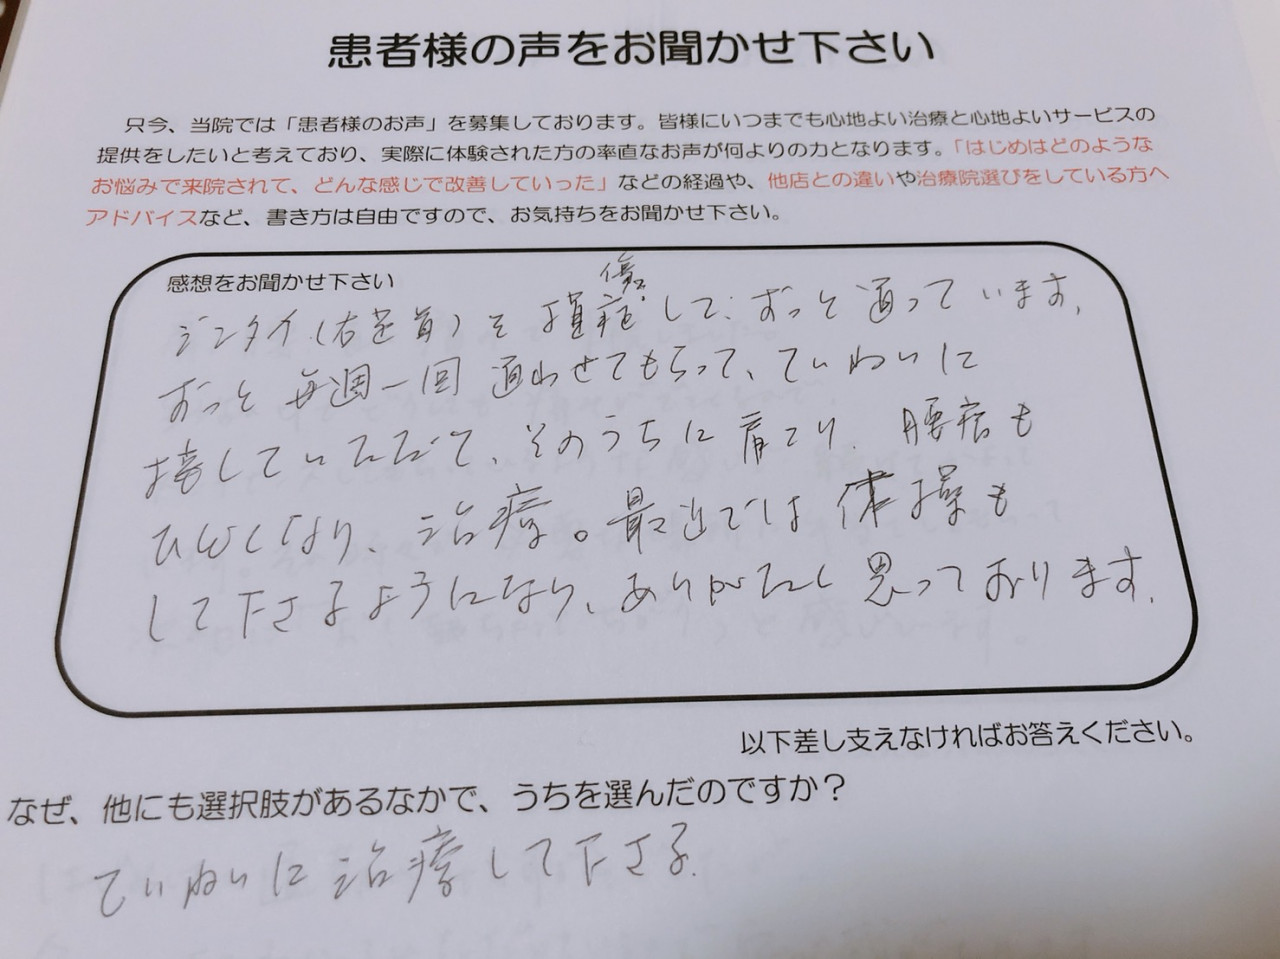 患者様の声をお聞かせ下さい
只今、当院では「患者様のお声」を募集しております。皆様にいつまでも心地よい治療と心地よいサービスの
提供をしたいと考えており、実際に体験された方の率直なお声が何よりの力となります。「はじめはどのような
お悩みで来院されて、どんな感じで改善していった」などの経過や、他店との違いや治療院選びをしている方へ
アドバイスなど、書き方は自由ですので、お気持ちをお聞かせ下さい。
感想をお聞かせ下さい
ジンタイ(右足首)を損傷して、ずっと通っています。
ずっと毎週一回通わせてもらって、ていねいに
接していただいて、そのうちに肩こり、腰痛も
ひどくなり、治療。最近では体操も
して下さるようになり、ありがたく思っております。
以下差し支えなければお答えください。
なぜ、他にも選択肢があるなかで、うちを選んだのですか？
ていねいに治療して下さる。